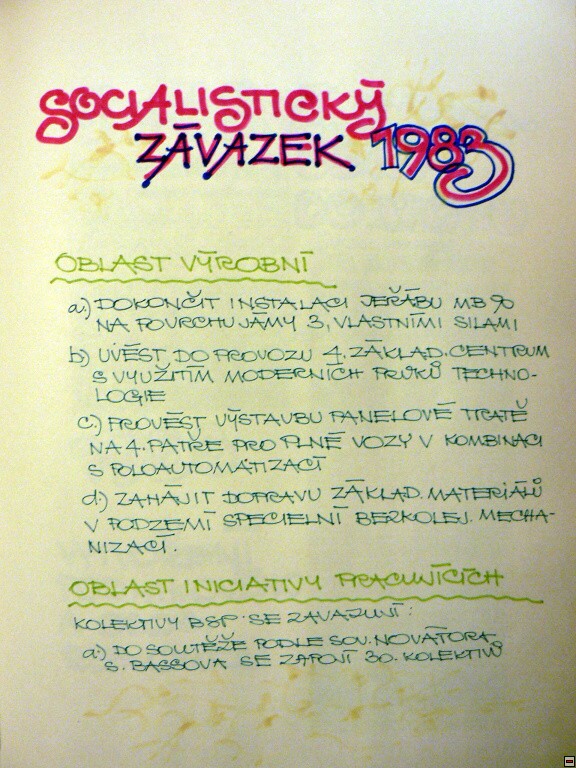 SOCIALISTICKÝ
ZÁVAZEK 1983
OBLAST VÝROBNÍ
a.) DOKONČIT INSTALACI JEŘÁBU MB 90
NA POVRCHU JÁMY 3, VLASTNÍMI SILAMI
b.) UVÉST DO PROVOZU 4. ZÁKLAD. CENTRUM
S VYUŽITÍM MODERNÍCH PRVKŮ TECHNO-
LOGIE
c.) PROVÉST VÝSTAVBU PANELOVÉ TRATĚ
NA 4. PATŘE PRO PLNÉ VOZY V KOMBINACI
S POLOAUTOMATIZACÍ
d.) ZAHÁJIT DOPRAVU ZÁKLAD. MATERIÁLŮ
V PODZEMÍ SPECIELNÍ BERKOLEJ. MECHA-
NIZACÍ.
OBLAST INICIATIVY PRACUJÍCÍCH
KOLEKTIVY BSP SE ZAVAZUJÍ:
a.) DO SOUTĚŽE PODLE SOV. NOVÁTORA
S. BASSOVA SE ZAPOJÍ 30. KOLEKTIVŮ